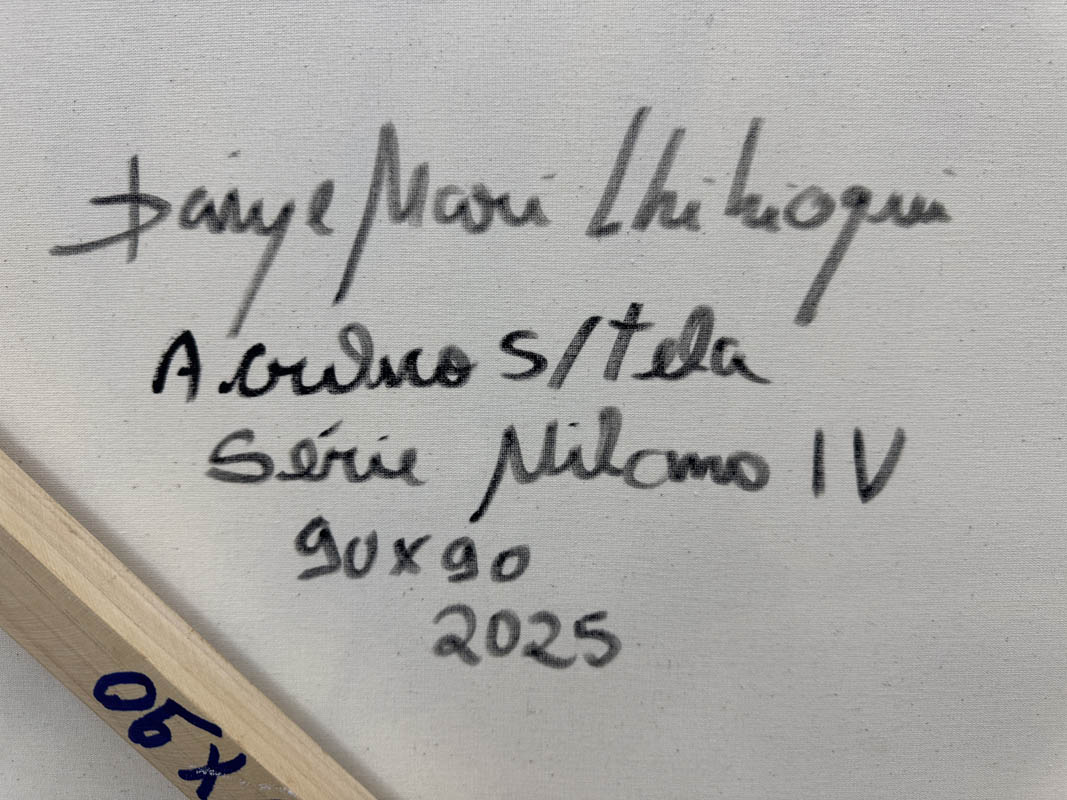 Danye Mari
Acrílico s/tela
Série Milano IV
90x90
2025
x 90